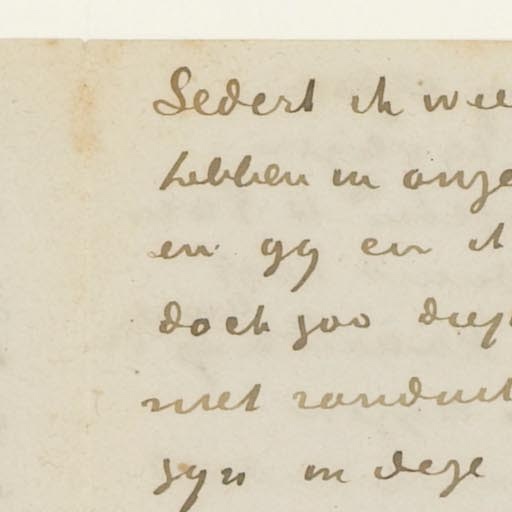 Sedert ik wee
hebben in onze
en gy en ik
doch zoo diep
niet ronduit
zyn in deze